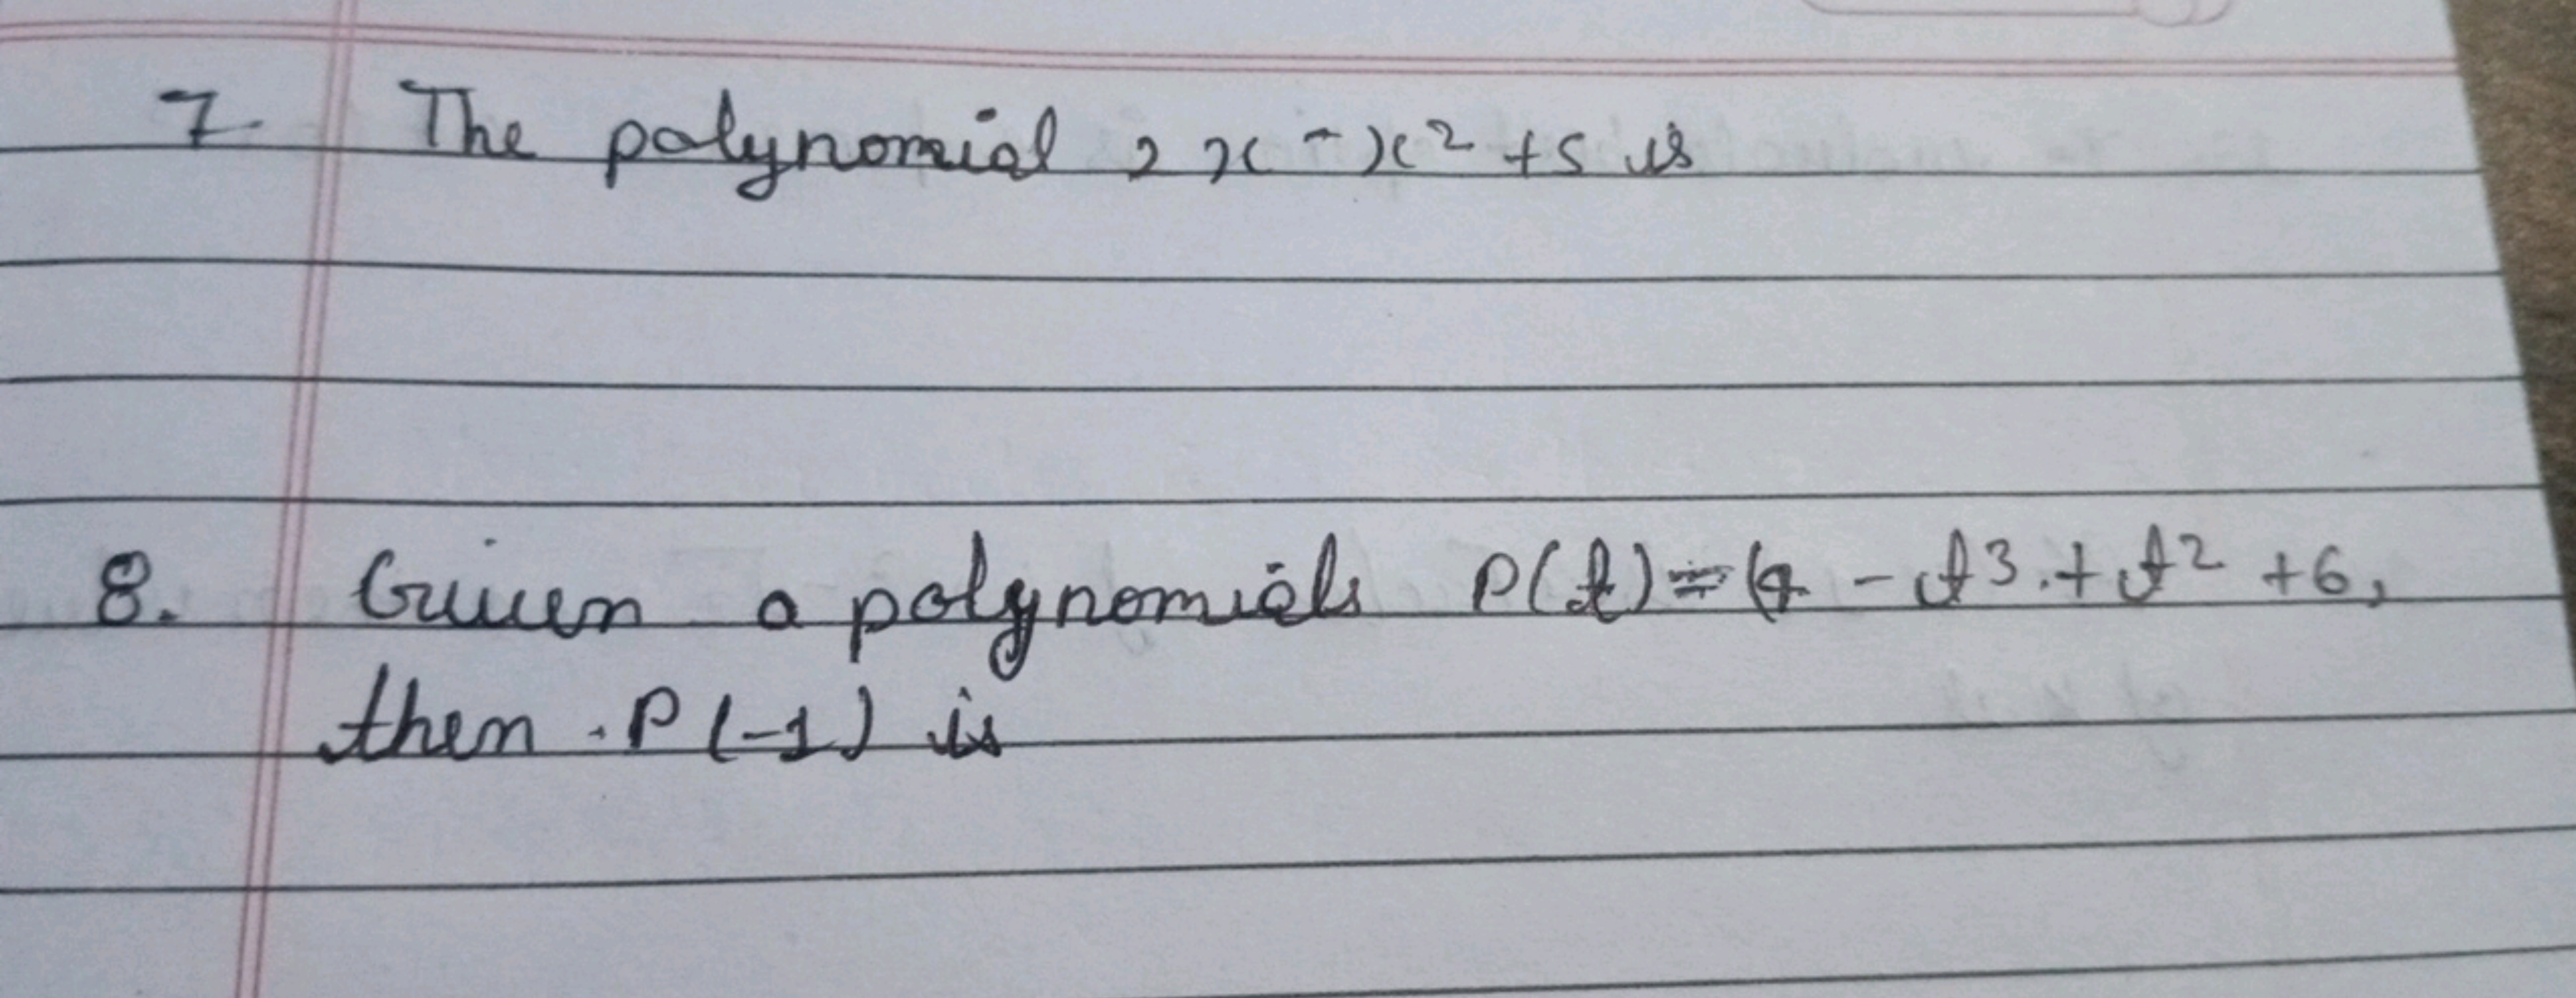 7. The polynomial 2x - x² + 5 is
8. Given a polynomials P(t) = - t³ + t² + 6,
then . P(-1) is